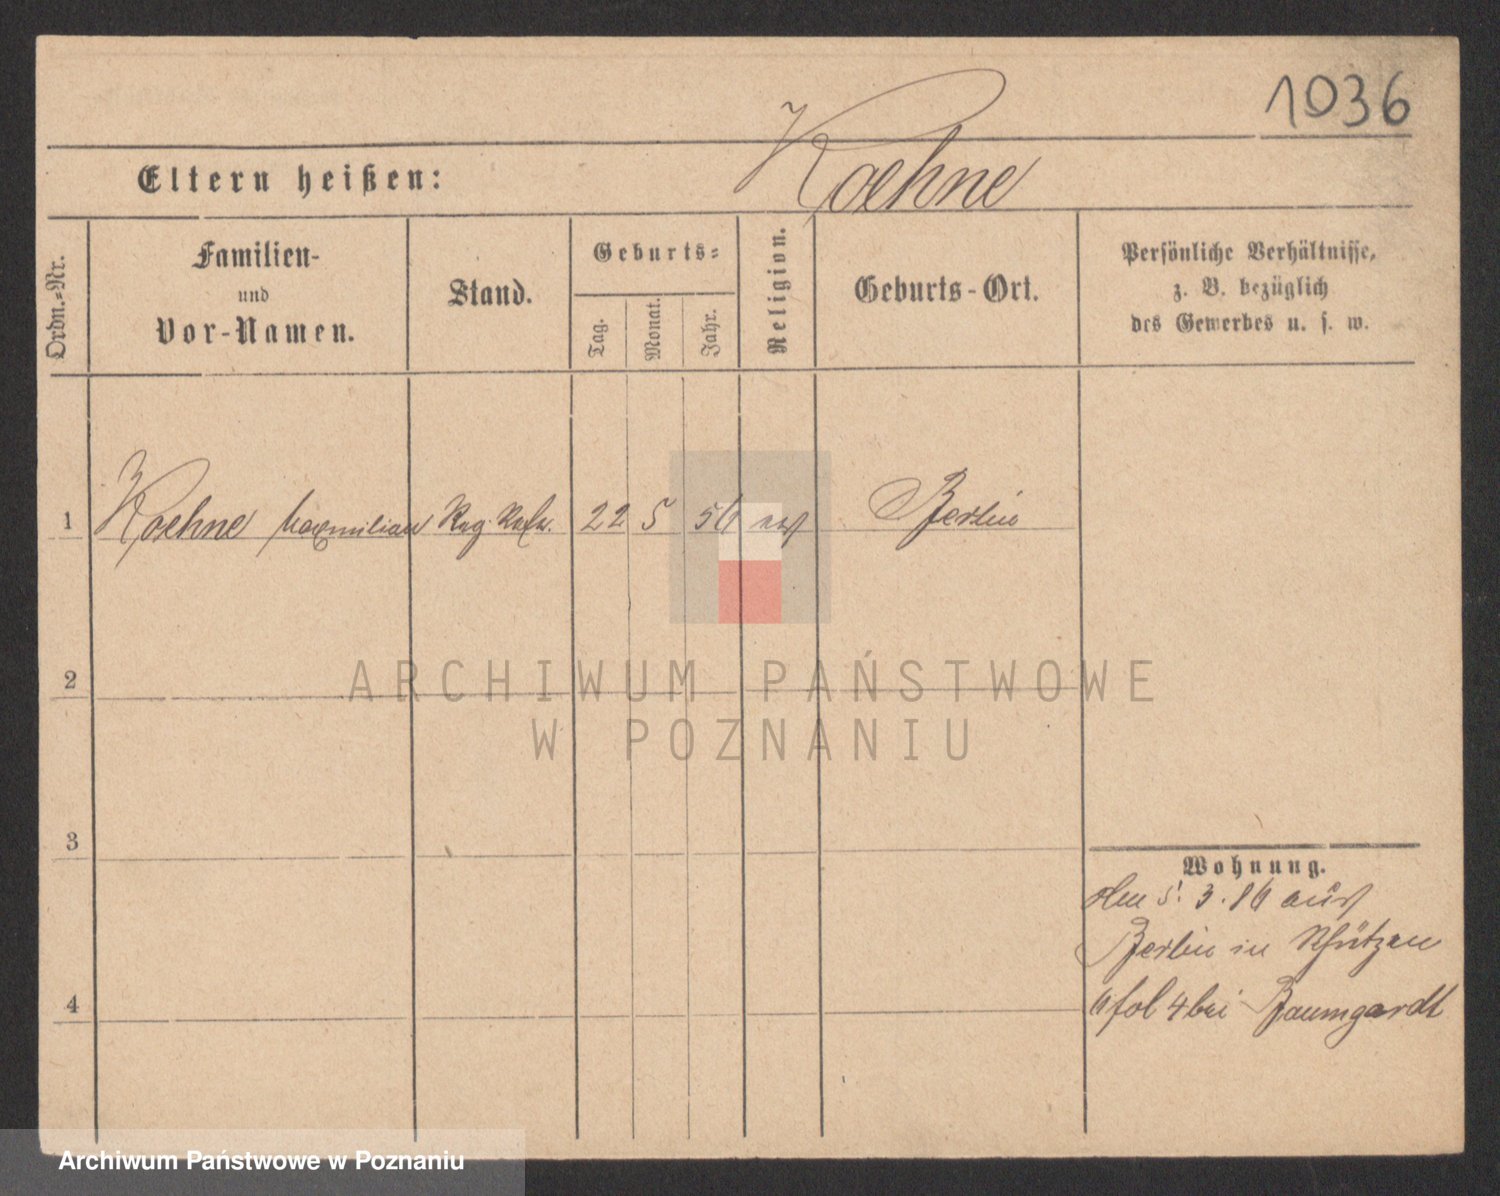 1036
Koehne
Eltern heißen:
Ordn.-Nr.
Familien-
und
Vor-Namen.
Stand.
Geburts-
Tag.
Monat.
Jahr.
Religion.
Geburts-Ort.
Persönliche Verhältnisse,
z. B. bezüglich
des Gewerbes u. s. w.
1 Koehne Maximilian Reg. 22 5 56 ev Berlin
2
3
4
Wohnung.
Den 5. 3. 86 aus
Berlin in Schützen
bei Baumgardt
ARCHIWUM PAŃSTWOWE
W POZNANIU
Archiwum Państwowe w Poznaniu